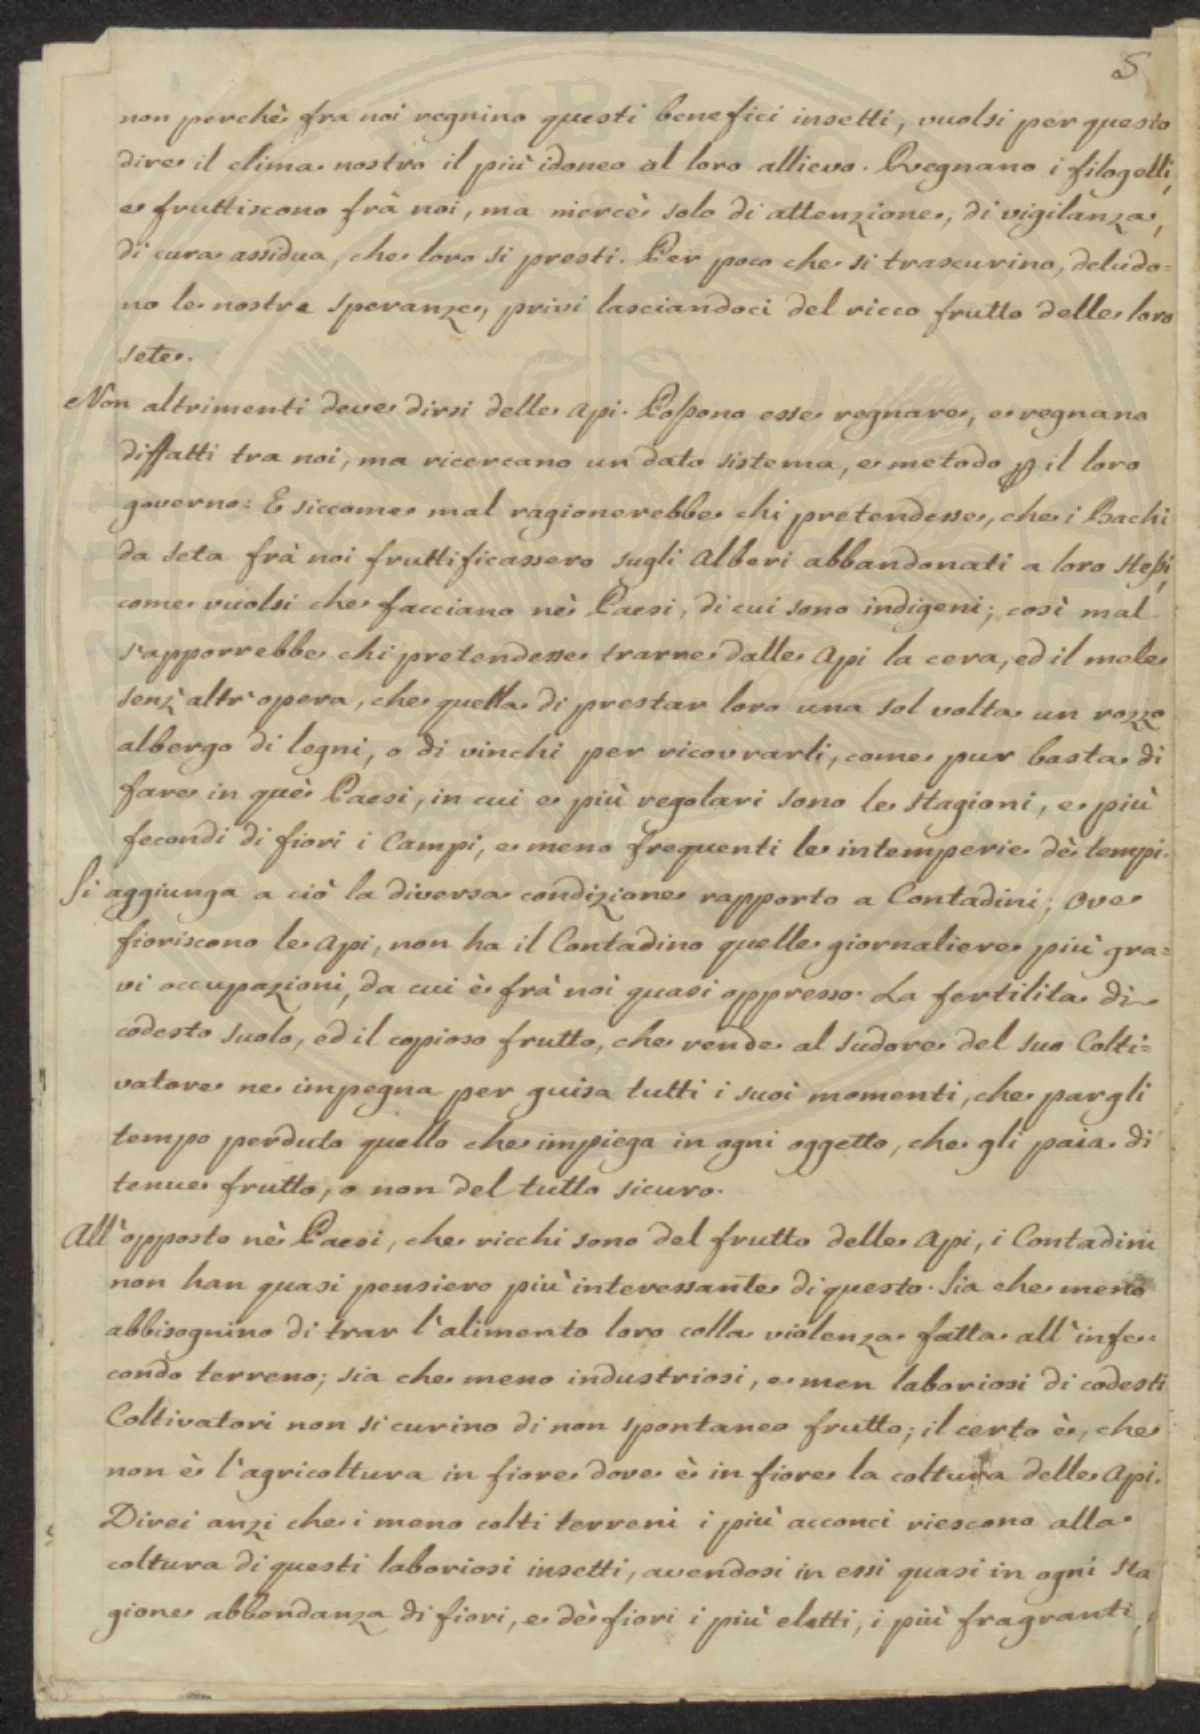 5
non perchè fra noi regnino questi benefici insetti, vuolsi per questo
dire il clima nostro il più idoneo al loro allievo. Regnano i filogelli,
e fruttiscono frà noi, ma mercè solo di attenzione, di vigilanza,
di cura assidua, che loro si presti. Per poco che si trascurino, deludo=
no le nostre speranze, privi lasciandoci del ricco frutto delle loro
sete.
Non altrimenti deve dirsi delle Api. Possono esse regnare, e regnano
diffatti tra noi, ma ricercano un dato sistema, e metodo ꝑ il loro
governo: E siccome mal ragionerebbe chi pretendesse, che i Bachi
da seta frà noi fruttificassero sugli Alberi abbandonati a loro stessi,
come vuolsi che facciano nè Paesi, di cui sono indigeni; così mal
s'apporrebbe chi pretendesse trarre dalle Api la cera, ed il mele
senz'altr'opera, che quella di prestar loro una sol volta un rozzo
albergo di legni, o di vinchi per ricovrarli, come pur basta di
fare in què Paesi, in cui e più regolari sono le stagioni, e più
fecondi di fiori i Campi, e meno frequenti le intemperie dè tempi.
Si aggiunga a ciò la diversa condizione rapporto a Contadini; Ove
fioriscono le Api, non ha il Contadino quelle giornaliere più gra=
vi occupazioni, da cui è frà noi quasi oppresso. La fertilita di
codesto suolo, ed il copioso frutto, che rende al sudore del suo Colti=
vatore ne impegna per guisa tutti i suoi momenti, che pargli
tempo perduto quello che impiega in ogni oggetto, che gli paia di
tenue frutto, o non del tutto sicuro.
All'opposto nè Paesi, che ricchi sono del frutto delle Api, i Contadini
non han quasi pensiero più interessante di questo. Sia che meno
abbisognino di trar l'alimento loro colla violenza fatta all'infe=
condo terreno; sia che meno industriosi, e men laboriosi di codesti
Coltivatori non si curino di non spontaneo frutto; il certo è, che
non è l'agricoltura in fiore dove è in fiore la coltura delle Api.
Direi anzi che i meno colti terreni i più acconci riescono alla
coltura di questi laboriosi insetti, avendosi in essi quasi in ogni sta
gione abbondanza di fiori, e dè fiori i più eletti, i più fragranti,